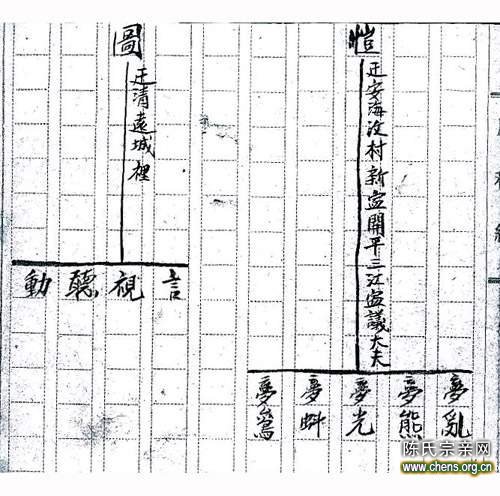 愷
迁安海汶村新宣開平三江宣議大夫
夢 夢熊 夢光 夢蚪 夢
圖
迁清遠城裡
言 視 聽 動
陈氏宗亲网
www.chens.org.cn